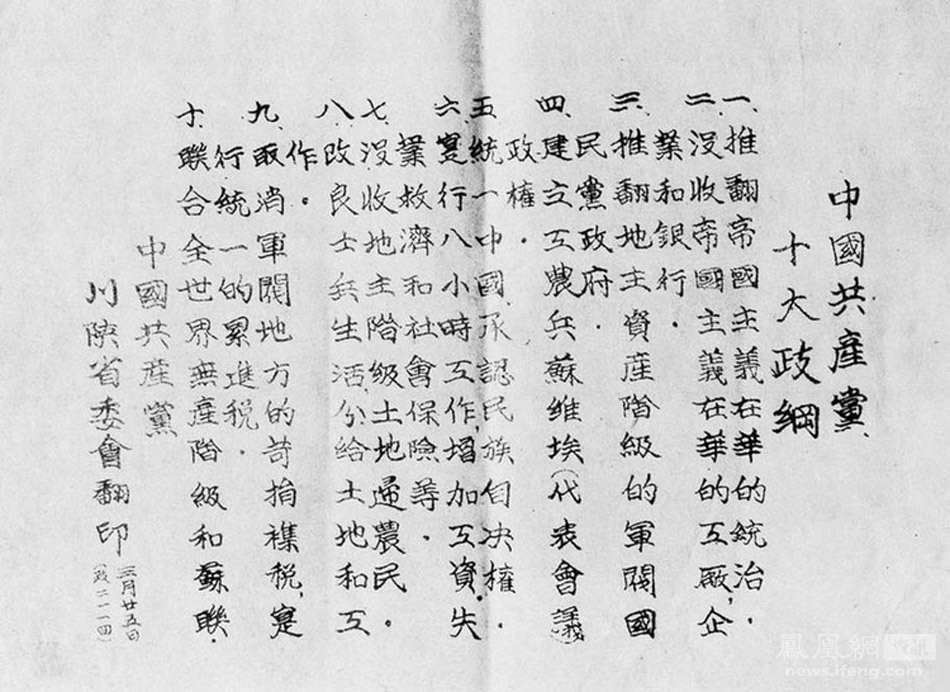 中國共產黨
十大政綱
一、推翻帝國主義在華的統治.
二、沒收帝國主義在華的工厰,企
業和銀行.
三、推翻地主資產階級的軍閥國
民黨政府.
四、建立工農兵蘇維埃(代表會議)
政權.
五、統一中國,承認民族自决權.
六、寔行八小時工作,增加工資.失
業救濟和社會保險等.
七、沒收地主階級土地農民。
八、改良士兵生活,分給土地和工
作。
九、取消軍閥地方的苛捐襍稅,寔
行統一的累進稅.
十、聯合全世界無產階級和蘇聯.
中國共產黨
川陝省委會翻印
三月廿五日
(政二一一四)
鳳凰網 資訊
news.ifeng.com